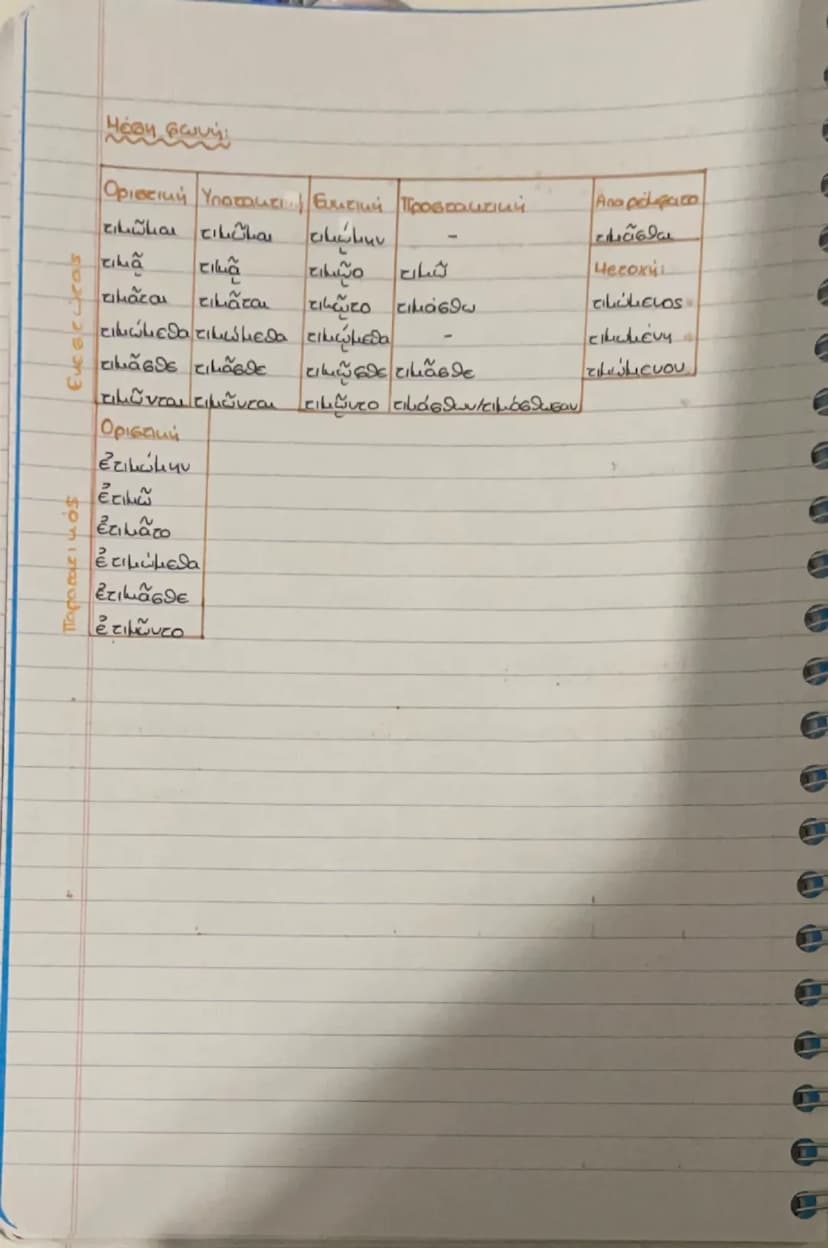 Μέση φωνή:
Οριστική Υποτακτι Ευκτική Προστακτική Απαρέμφατο
τιμῶμαι τιμῶμαι τιμῴμην - τιμᾶσθαι
τιμᾷ τιμᾷ τιμῷο τιμῶ Μετοχή:
τιμᾶται τιμᾶται τιμῷτο τιμάσθω τιμώμενος
τιμώμεθα τιμώμεθα τιμῴμεθα - τιμωμένη
τιμᾶσθε τιμᾶσθε τιμῷσθε τιμᾶσθε τιμώμενον
τιμῶνται τιμῶνται τιμῷντο τιμάσθων/τιμάσθωσαν
Ενεστώτας
Οριστική
ἐτιμώμην
ἐτιμῶ
ἐτιμᾶτο
ἐτιμώμεθα
ἐτιμᾶσθε
ἐτιμῶντο
Παρατατικός